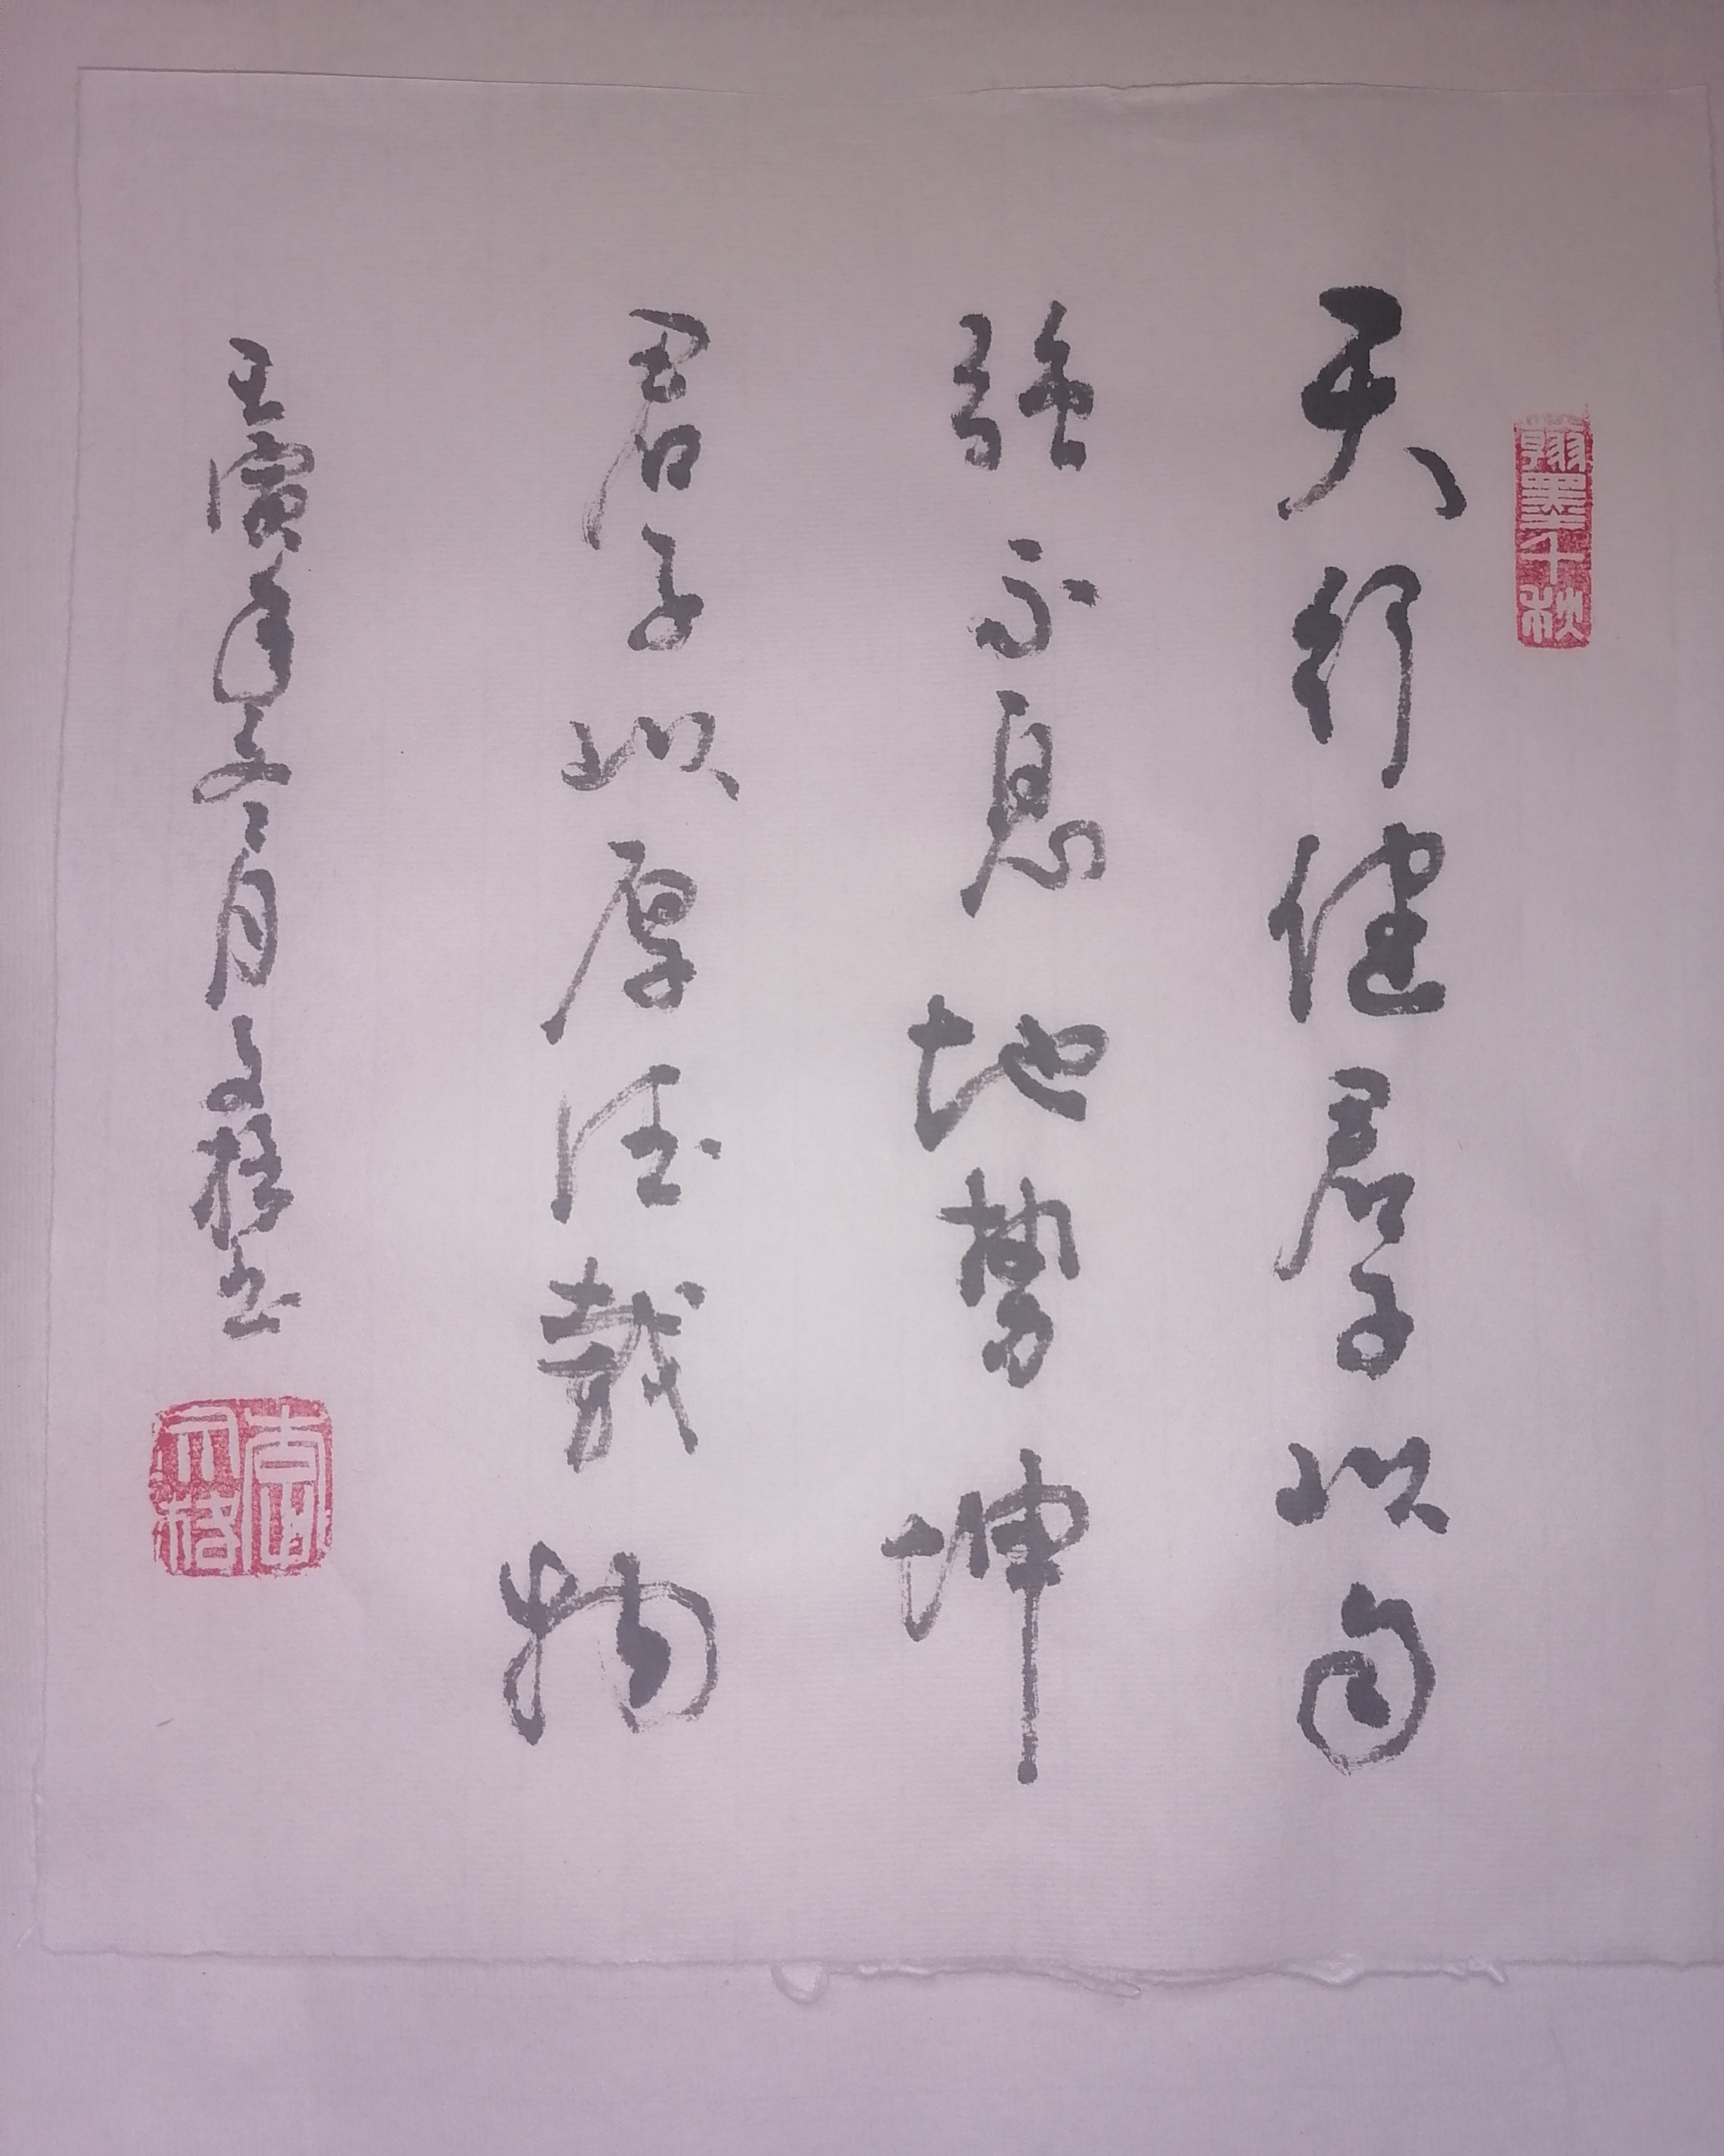 翰墨千秋
天行健君子以自
強不息地勢坤
君子以厚德載物
壬寅年文月文格书